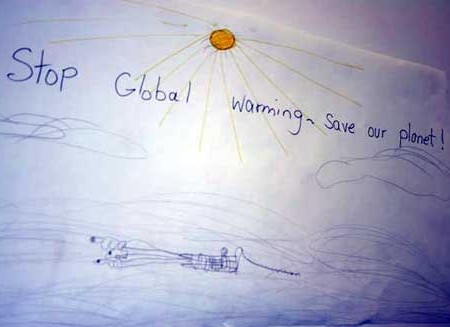 Stop Global warming~ Save our planet!